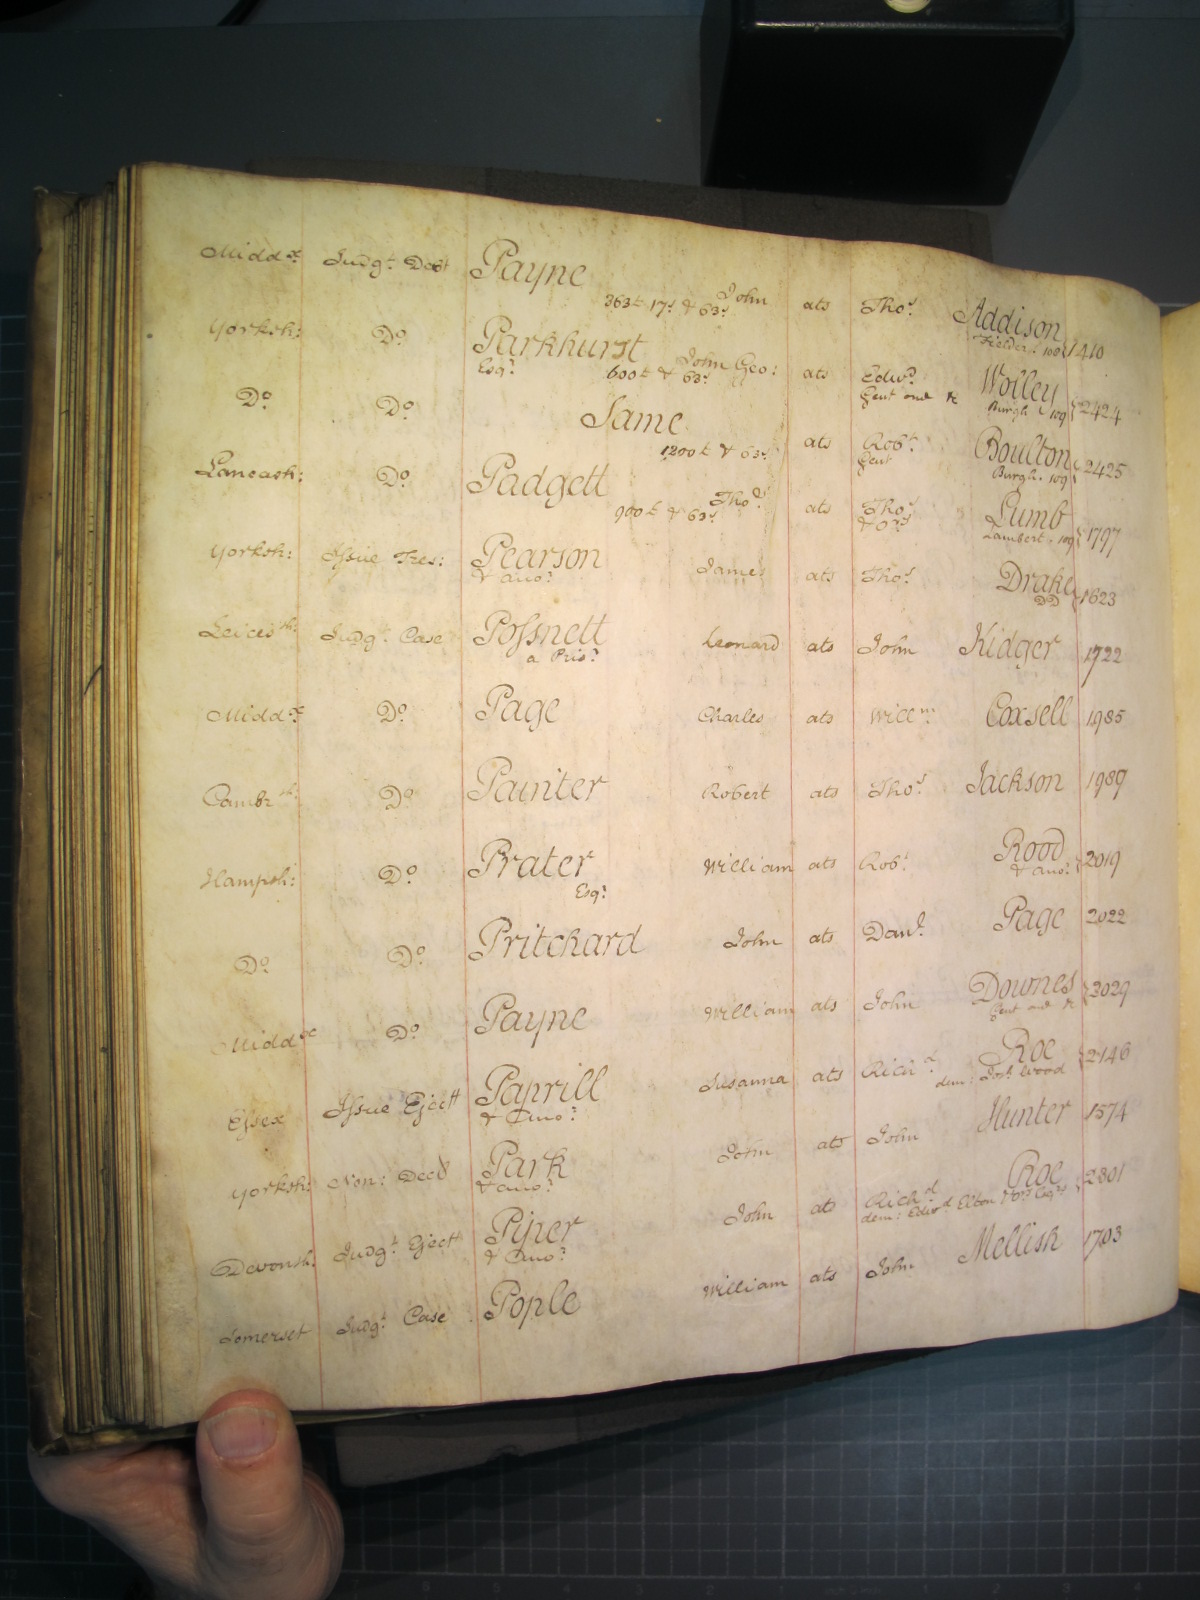 Midd.x Judg.t Debt Payne John ats Tho.s Addison 1410
363£ 17s & 63s Fielder. 100
Yorksh: Do. Parkhurst John Geo: ats Edw.d Wolley 2424
Esq.r 600£ & 63s Gent one &c Burgh. 109
Do. Do. Same ats Rob.t Boulton 2425
1200£ & 63s Gent Burgh. 109
Lancash: Do. Padgett Tho.s ats Tho.s Lumb 1797
900£ & 63s & ors Lambert. 109
Yorksh: Issue Tres: Pearson James ats Tho.s Drake 1623
& ano.r DD
Leices.th: Judg.t Case Possnett Leonard ats John Kidger 1722
a Pris.r
Midd.x Do. Page Charles ats Will.m Coxsell 1985
Cambr.th: Do. Painter Robert ats Tho.s Jackson 1989
Hampsh: Do. Prater William ats Rob.t Rood 2019
Esq.r & ano.r
Do. Do. Pritchard John ats Dan.l Page 2022
Midd.x Do. Payne William ats John Downes 2029
Gent one &c
Essex Issue Eject.t Paprill Susanna ats Rich.d Roe 2146
& Ano.r dem: Jos.h Wood
Yorksh: Non: Decd Park John ats John Hunter 1574
& ano.r
Devonsh: Judg.t Eject.t Piper John ats Rich.d Roe 2301
& Ano.r dem: Edw.d Elton & ors Esq.rs
Somerset Judg.t Case Pople William ats John Mellish 1703